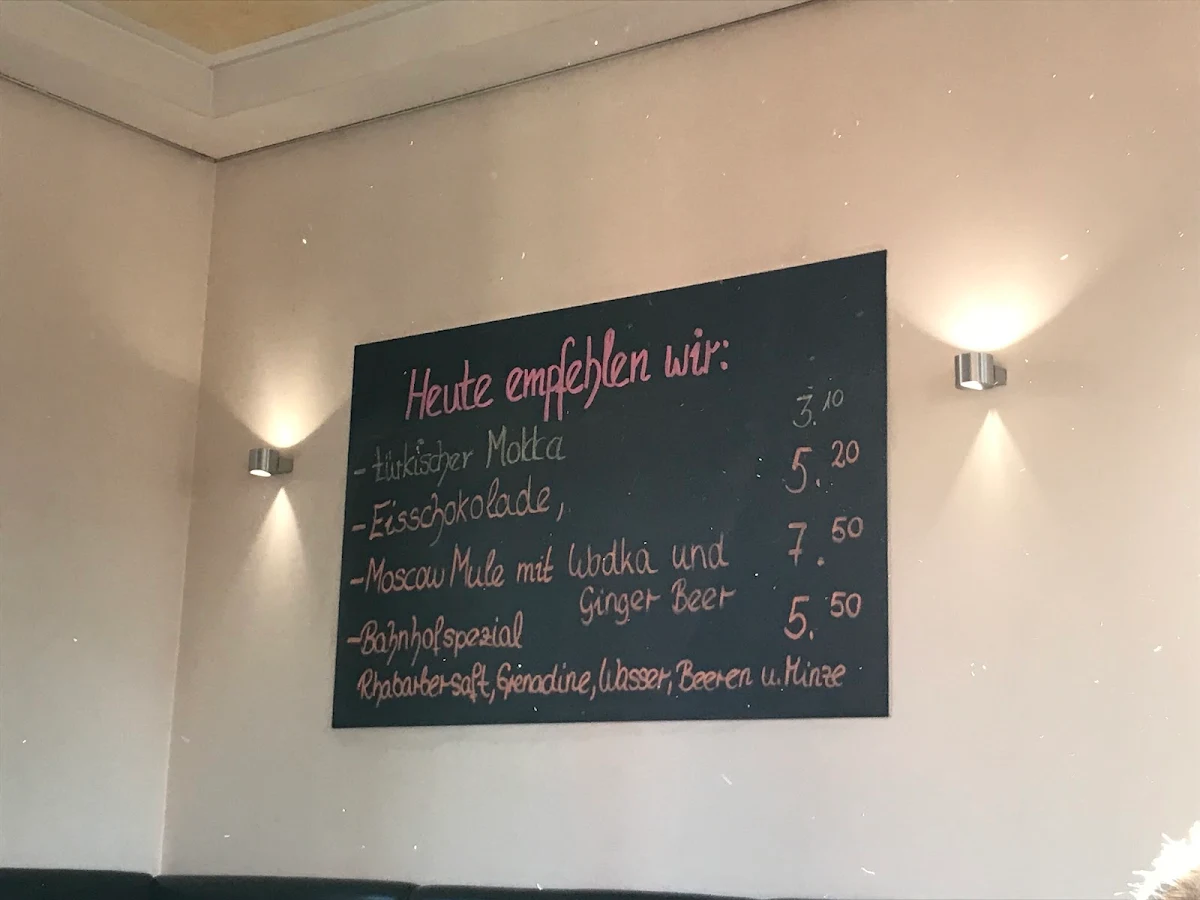 Heute empfehlen wir:
- türkischer Mokka 3.10
- Eisschokolade, 5.20
- Moscow Mule mit Wodka und 7.50
Ginger Beer
- Bahnhofspezial 5.50
Rhabarbersaft, Grenadine, Wasser, Beeren u. Minze